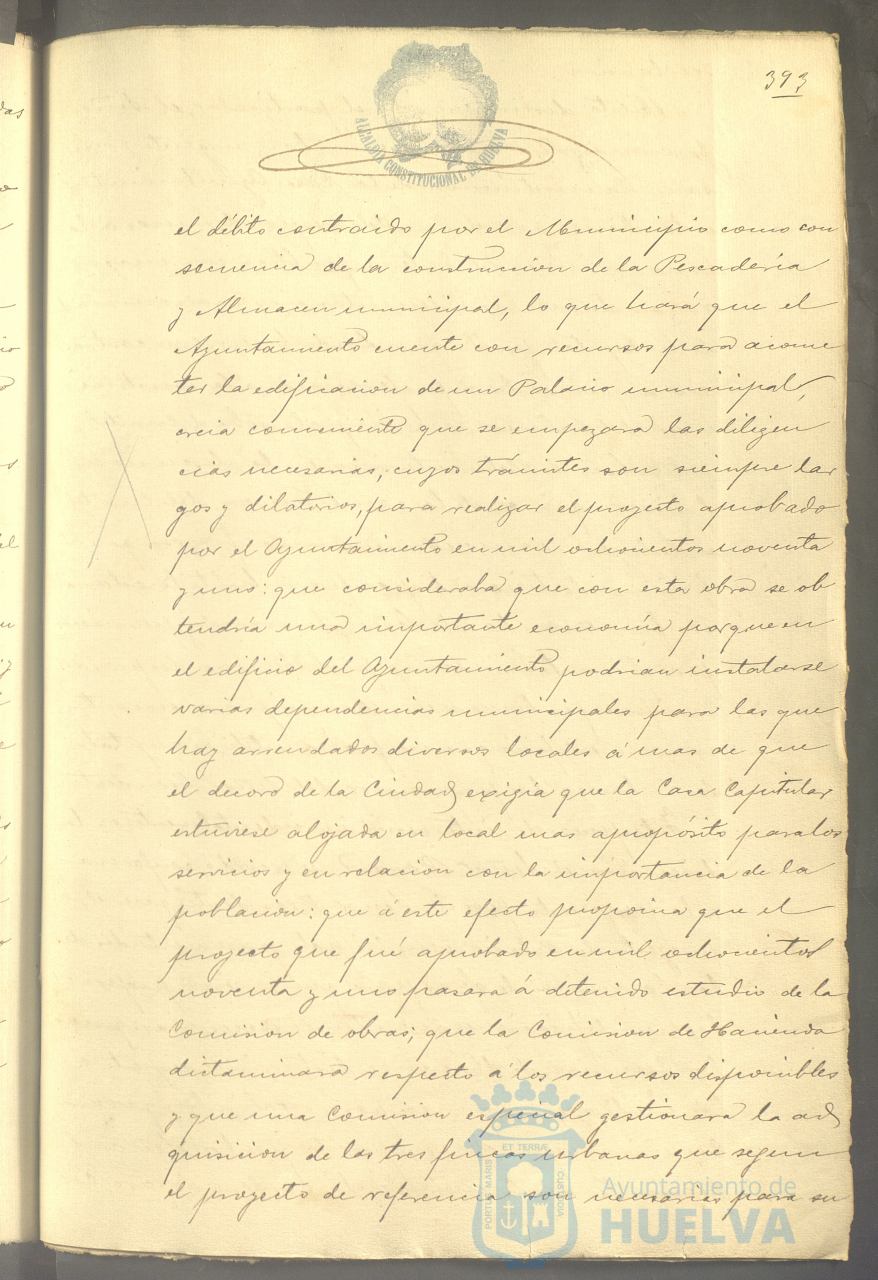 393
ALCALDIA CONSTITUCIONAL DE HUELVA
el débito contraido por el Municipio como con
secuencia de la construccion de la Pescadería
y Almacen municipal, lo que hará que el
Ayuntamiento cuente con recursos para acome
ter la edificacion de un Palacio municipal,
creia conveniente que se empezara las diligen
cias necesarias, cuyos trámites son siempre lar
gos y dilatorios, para realizar el proyecto aprobado
por el Ayuntamiento en mil ochocientos noventa
y uno: que consideraba que con esta obra se ob
tendría una importante economía porque en
el edificio del Ayuntamiento podrian instalarse
varias dependencias municipales para las que
hay arrendados diversos locales á mas de que
el decoro de la Ciudad exigía que la Casa Capitular
estuviese alojada en local mas apropósito para los
servicios y en relacion con la importancia de la
poblacion: que á este efecto proponia que el
proyecto que fué aprobado en mil ochocientos
noventa y uno pasara á detenido estudio de la
Comision de obras; que la Comision de Hacienda
dictaminara respecto á los recursos disponibles
y que una Comision especial gestionara la ad
quisicion de las tres fincas urbanas que segun
el proyecto de referencia son necesarias para su
PORTUS MARIS ET TERRÆ CUSTODIA
Ayuntamiento de
HUELVA